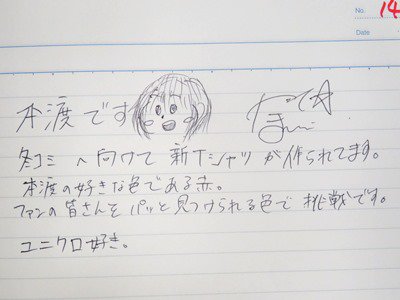 No. 14
Date
本渡です
まい
冬コミへ向けて新Tシャツが作られてます。
本渡の好きな色である赤。
ファンの皆さんをパッと見つけられる色で挑戦です。
ユニクロ好き。